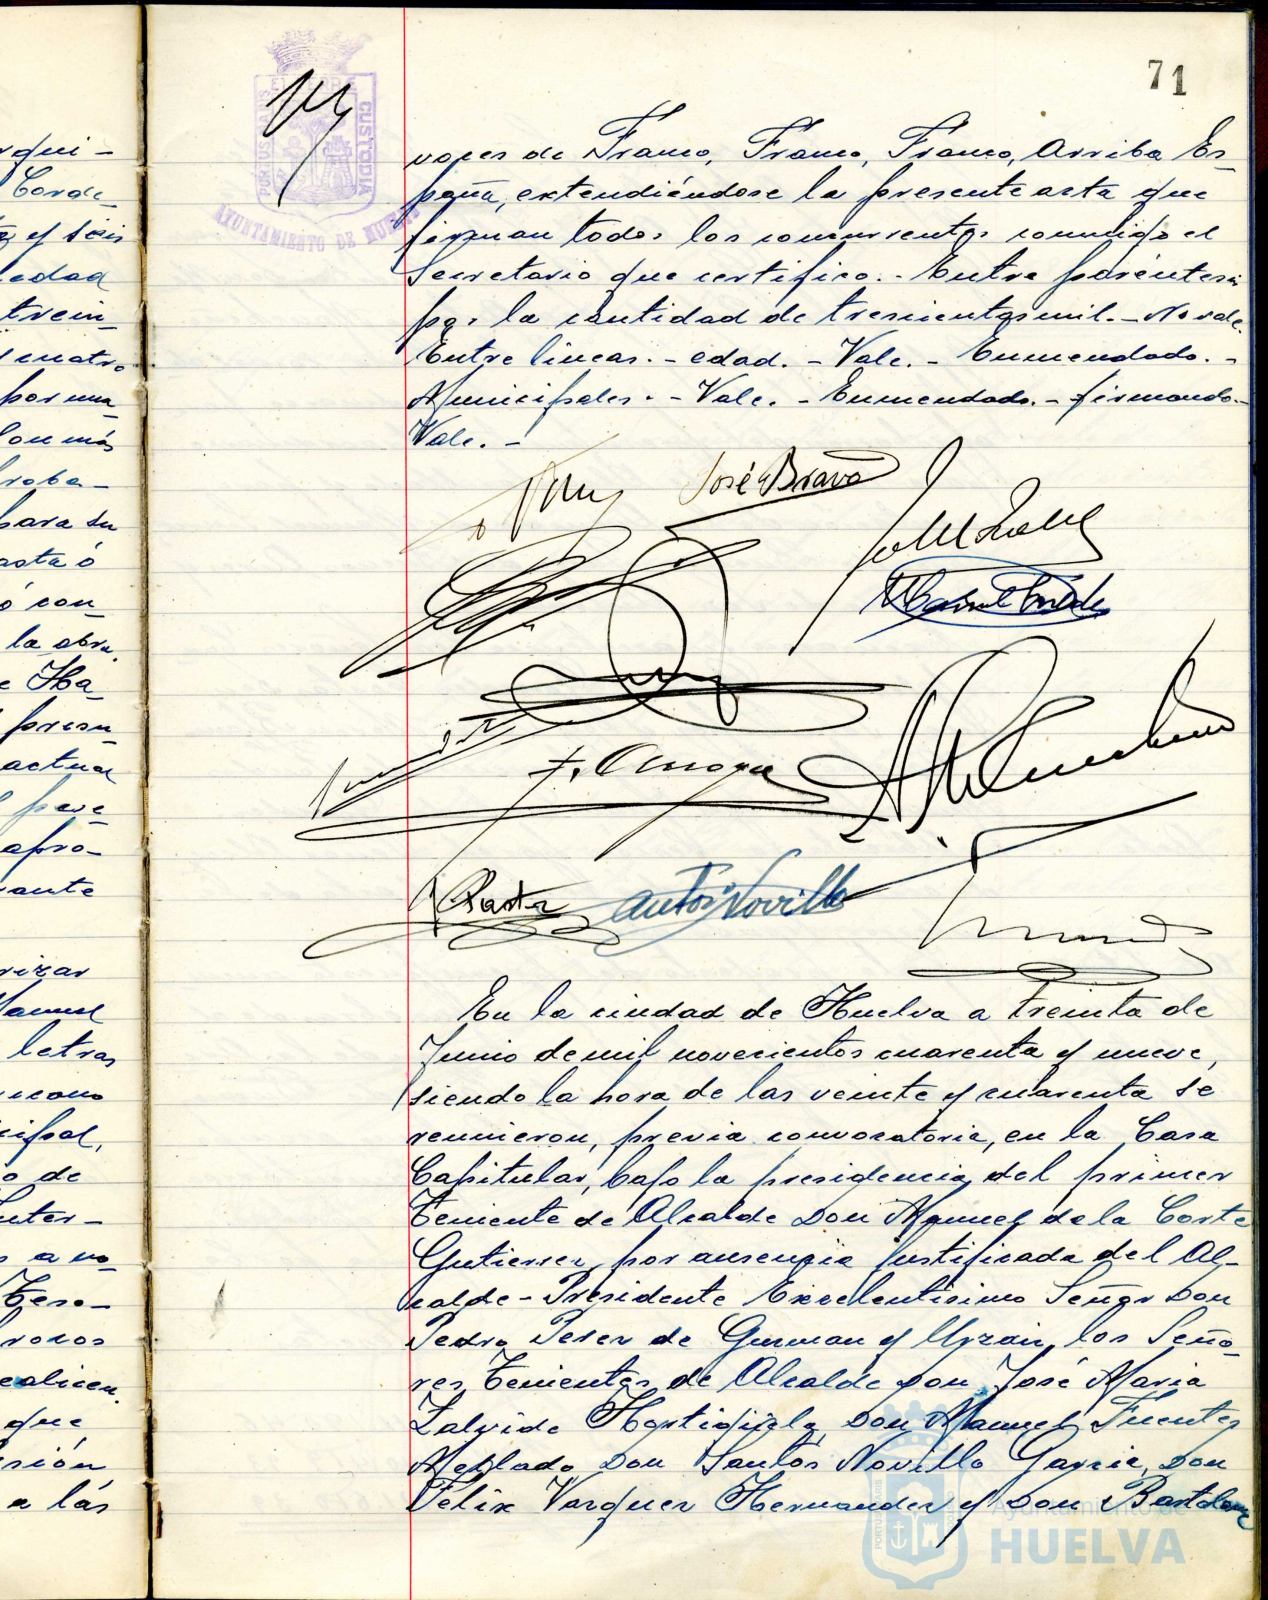 71
PORTUS MARIS ET TERRAE CUSTODIA
AYUNTAMIENTO DE HUELVA
rqui-
Corde-
y seis
edad
trein-
cuatro
por una
con más
roba-
para su
asta ó
ó con-
la obra.
e Ha-
presu-
actual
apro-
rante
rizar
Manuel
letras
cipal,
o de
Inter-
a vo-
Teso-
rocos
ealicen
que
sión
a las
voces de Franco, Franco, Franco, Arriba Es-
paña, extendiéndose la presente acta que
firman todos los concurrentes conmigo el
Secretario que certifico.- Entre paréntesis
por la cantidad de trescientas mil.- No vale.
Entre lineas.- edad.- Vale.- Enmendado.-
Municipales.- Vale.- Enmendado.- firmando.-
Vale.-
José Bravo
F. Oruogui
Santos Novillo
En la ciudad de Huelva a treinta de
Junio de mil novecientos cuarenta y nueve,
siendo la hora de las veinte y cuarenta se
reunieron, previa convocatoria, en la Casa
Capitular, bajo la presidencia del primer
Teniente de Alcalde Don Manuel de la Corte
Gutierrez, por ausencia justificada del Al-
calde-Presidente Excelentísimo Señor Don
Pedro Perez de Guzman y Urzaiz, los Seño-
res Tenientes de Alcalde Don José Maria
Zalvide Hortigüela, Don Manuel Fuentes
Meblado Don Santos Novillo Garcia, Don
Felix Vazquez Hernandez y Don Bartolomé
Ayuntamiento de
HUELVA